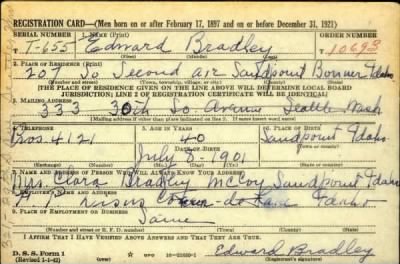 REGISTRATION CARD—(Men born on or after February 17, 1897 and on or before December 31, 1921)
SERIAL NUMBER 1. NAME (Print) ORDER NUMBER
T-655 Edward Bradley 10693
(First) (Middle) (Last)
2. PLACE OF RESIDENCE (Print)
207 So Second Sandpoint Bonner Idaho
(Number and street) (Town, township, village, or city) (County) (State)
[THE PLACE OF RESIDENCE GIVEN ON THE LINE ABOVE WILL DETERMINE LOCAL BOARD
JURISDICTION; LINE 2 OF REGISTRATION CERTIFICATE WILL BE IDENTICAL]
3. MAILING ADDRESS
333 30th So. Avenue Seattle Wash
[Mailing address if other than place indicated on line 2. If same insert word same]
4. TELEPHONE 5. AGE IN YEARS 6. PLACE OF BIRTH
Pros. 4121 40 Sandpoint
DATE OF BIRTH
July 8-1901 Idaho
7. NAME AND ADDRESS OF PERSON WHO WILL ALWAYS KNOW YOUR ADDRESS
Mrs Clara Bradley McCoy Sandpoint Idaho
8. EMPLOYER'S NAME AND ADDRESS
Idaho
9. PLACE OF EMPLOYMENT OR BUSINESS
Same
I AFFIRM THAT I HAVE VERIFIED ABOVE ANSWERS AND THAT THEY ARE TRUE.
D. S. S. Form 1
(Revised 1-1-42) Edward Bradley
(Registrant's signature)